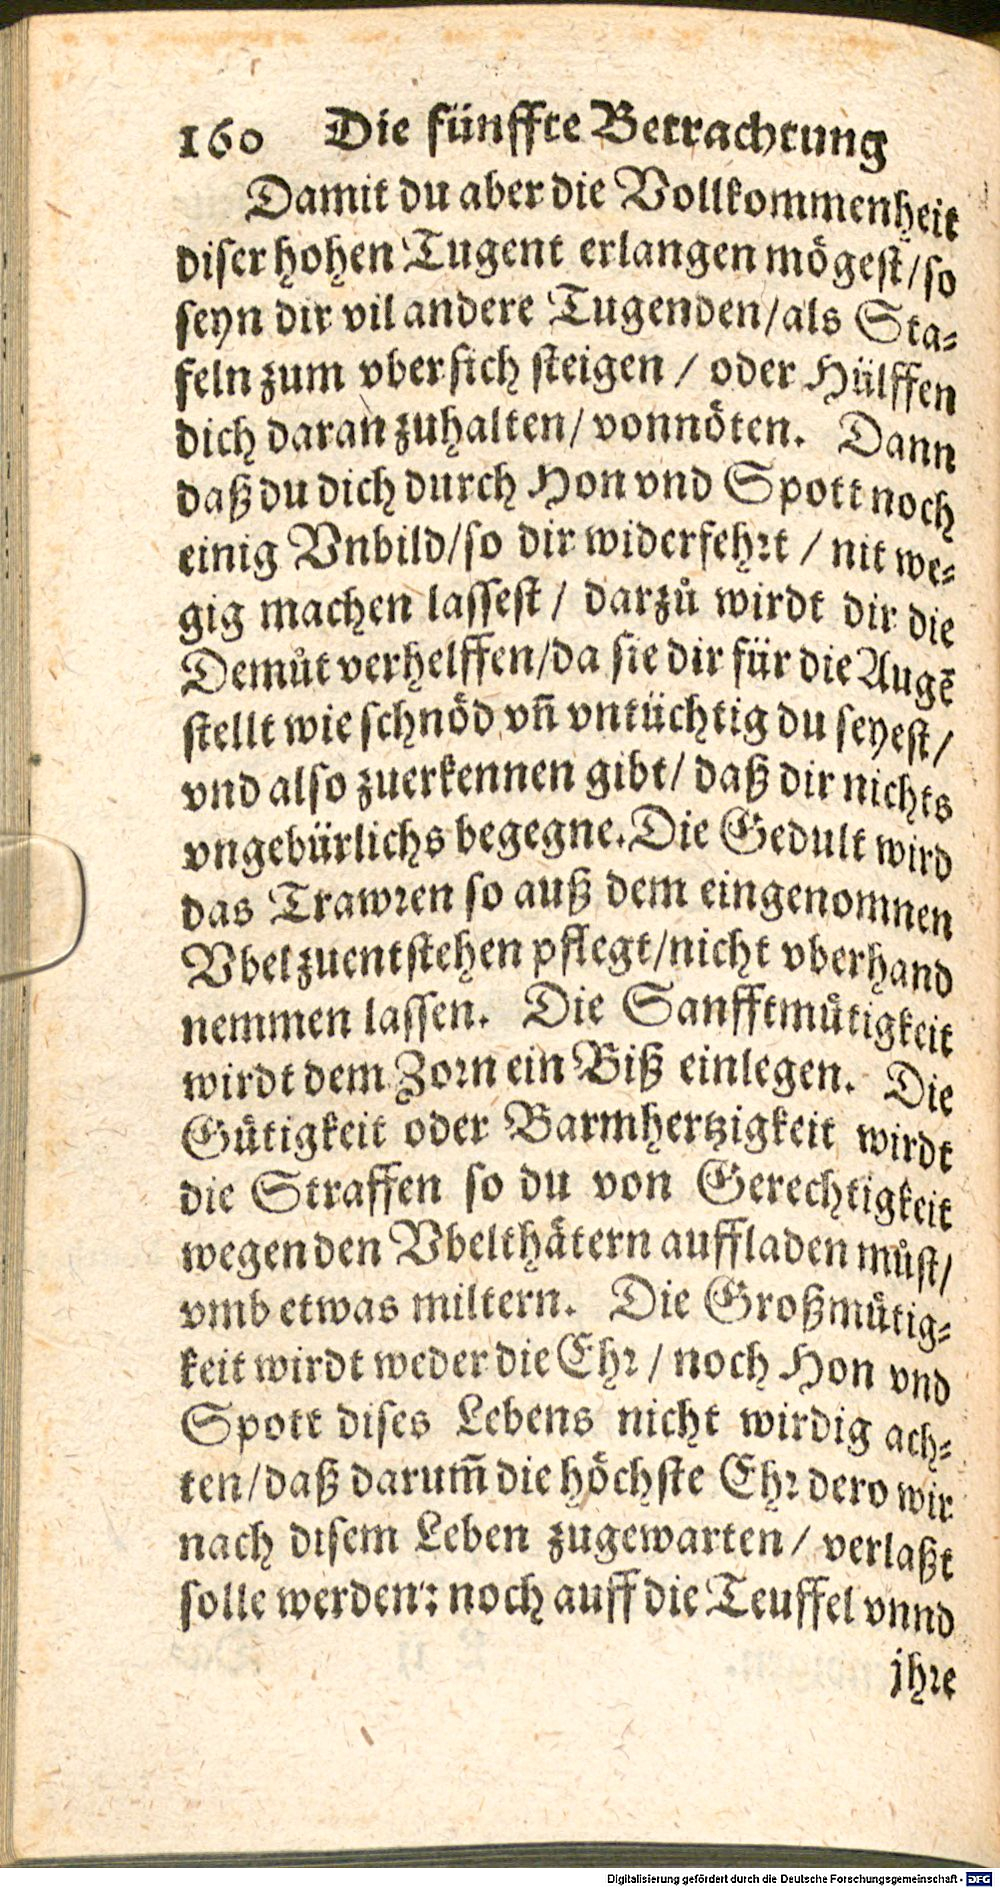 160 Die fünffte Betrachtung
Damit du aber die Vollkommenheit
diser hohen Tugent erlangen mögest/ so
seyn dir vil andere Tugenden/ als Sta-
feln zum vbersich steigen / oder Hülffen
dich daran zuhalten/ vonnöten. Dann
daß du dich durch Hon vnd Spott noch
einig Vnbild/ so dir widerfehrt / nit we-
gig machen lassest / darzů wirdt dir die
Demůt verhelffen/ da sie dir für die Augē
stellt wie schnöd vñ vntüchtig du seyest/
vnd also zuerkennen gibt/ daß dir nichts
vngebürlichs begegne. Die Gedult wird
das Trawren so auß dem eingenomnen
Vbel zuentstehen pflegt/ nicht vberhand
nemmen lassen. Die Sanfftmütigkeit
wirdt dem Zorn ein Biß einlegen. Die
Gütigkeit oder Barmhertzigkeit wirdt
die Straffen so du von Gerechtigkeit
wegen den Vbelthätern auffladen můst/
vmb etwas miltern. Die Großmütig-
keit wirdt weder die Ehr / noch Hon vnd
Spott dises Lebens nicht wirdig ach-
ten/ daß darum̃ die höchste Ehr dero wir
nach disem Leben zugewarten/ verlaßt
solle werden: noch auff die Teuffel vnnd
jhre
Digitalisierung gefördert durch die Deutsche Forschungsgemeinschaft - DFG